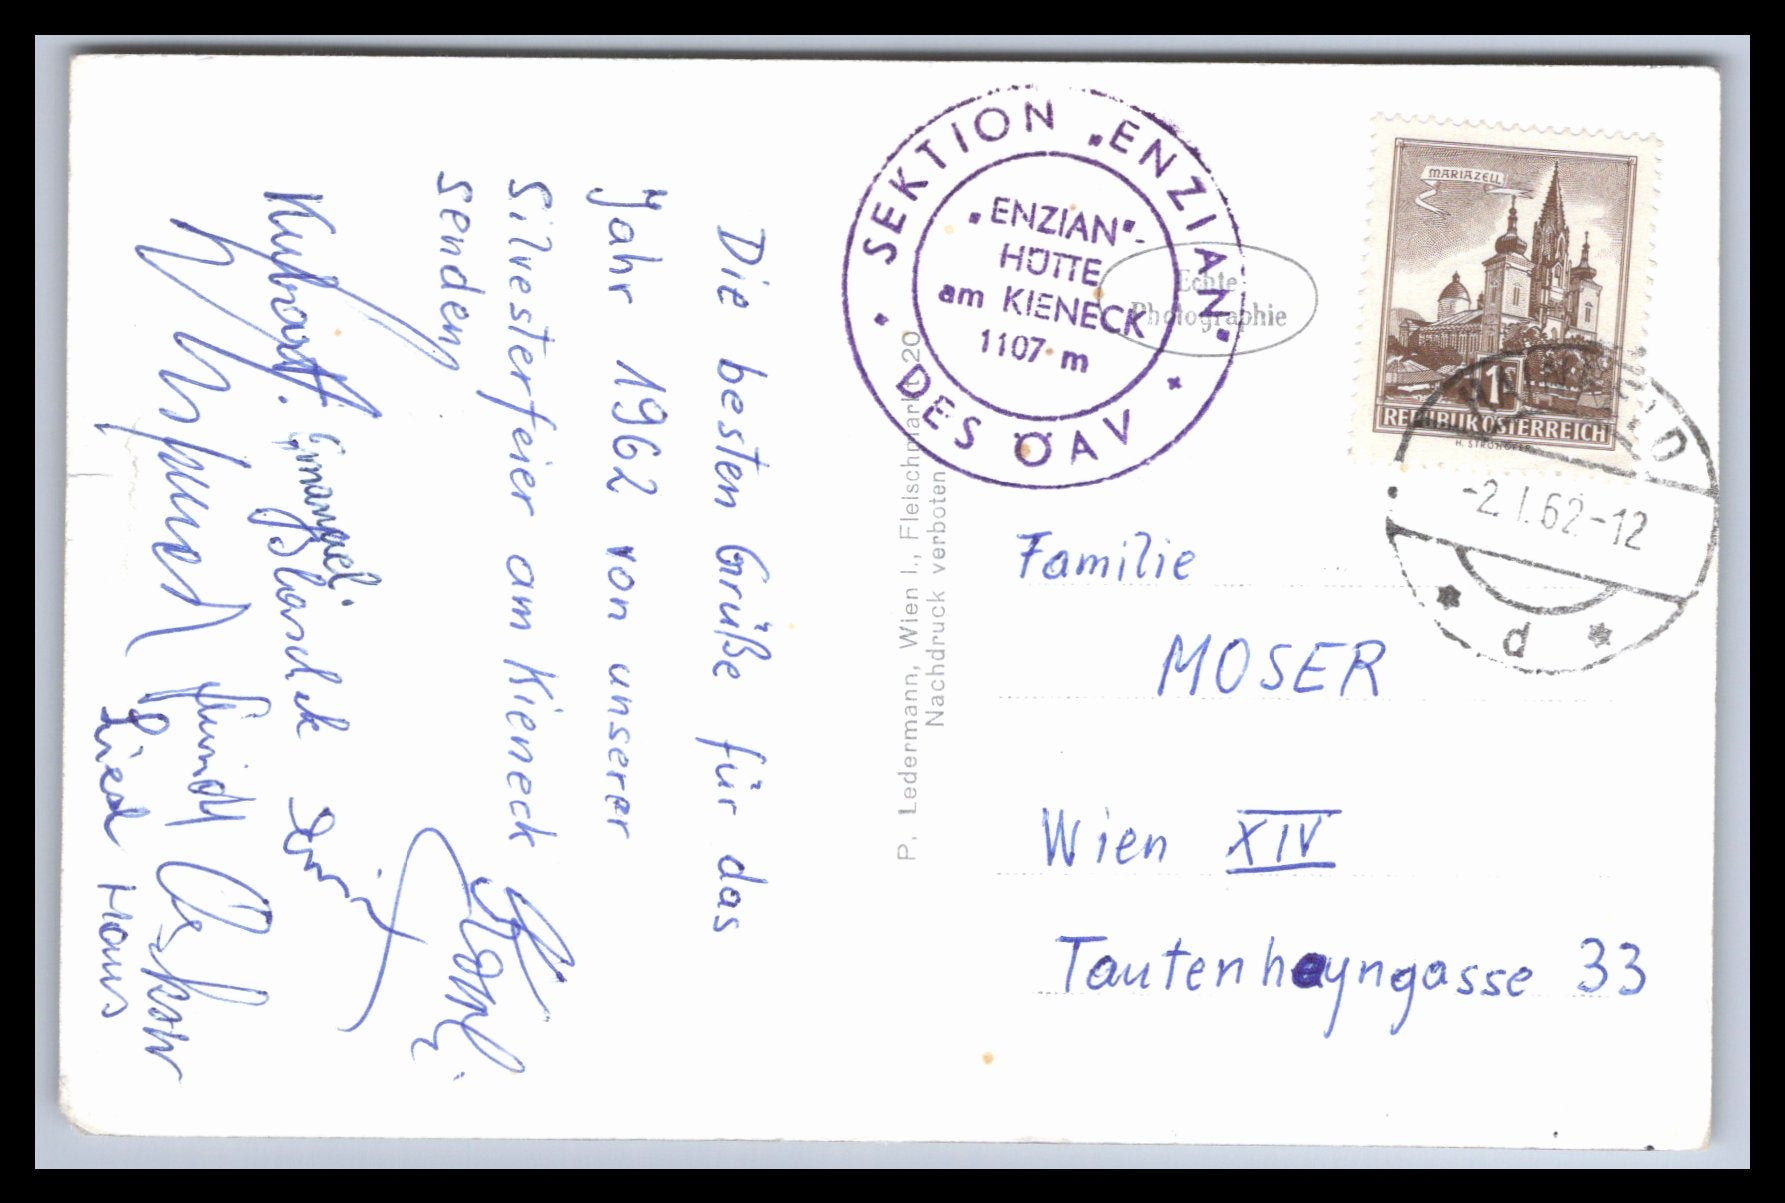 Die besten Grüße für das
Jahr 1962 von unserer
Silvesterfeier am Kieneck
senden
Emanuel
Hans
SEKTION „ENZIAN"
DES ÖAV
„ENZIAN"-
HÜTTE
am KIENECK
1107 m
Echte
Photographie
P. Ledermann, Wien I., Fleischmarkt 20
Nachdruck verboten
MARIAZELL
1S
REPUBLIK ÖSTERREICH
H. STROHOFER
-2.I.62-12
d
Familie
MOSER
Wien XIV
Tautenhayngasse 33